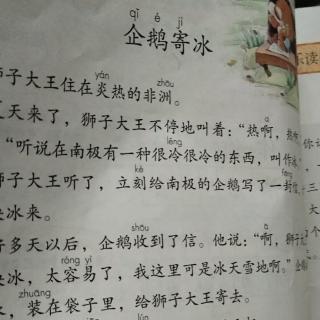 qǐ é jì
企鹅寄冰
乐读
子大王住在炎热的非洲。
yán zhōu
天来了，狮子大王不停地叫着：“热啊，热
“听说在南极有一种很冷很冷的东西，叫作
lěng
子大王听了，立刻给南极的企鹅写了一封
kè fēng
冰来。
多天以后，企鹅收到了信。他说：“啊，狮子
shōu a
冰，太容易了，我这里可是冰天雪地啊。”
róng yì
，装在袋子里，给狮子大王寄去。
zhuāng